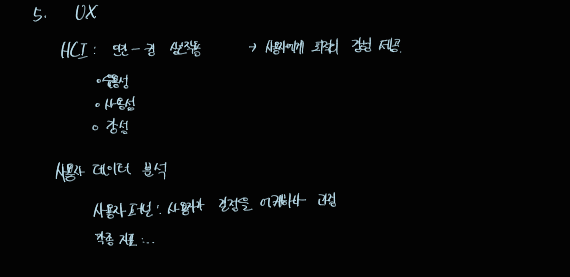 5. UX
HCI : 인간 - 컴 상호작용 → 사용자에게 최적의 경험 제공.
유용성
사용성
감성
사용자 데이터 분석
사용자 퍼널 : 사용자가 결정을 어케하나 과정
각종 지표 : ...